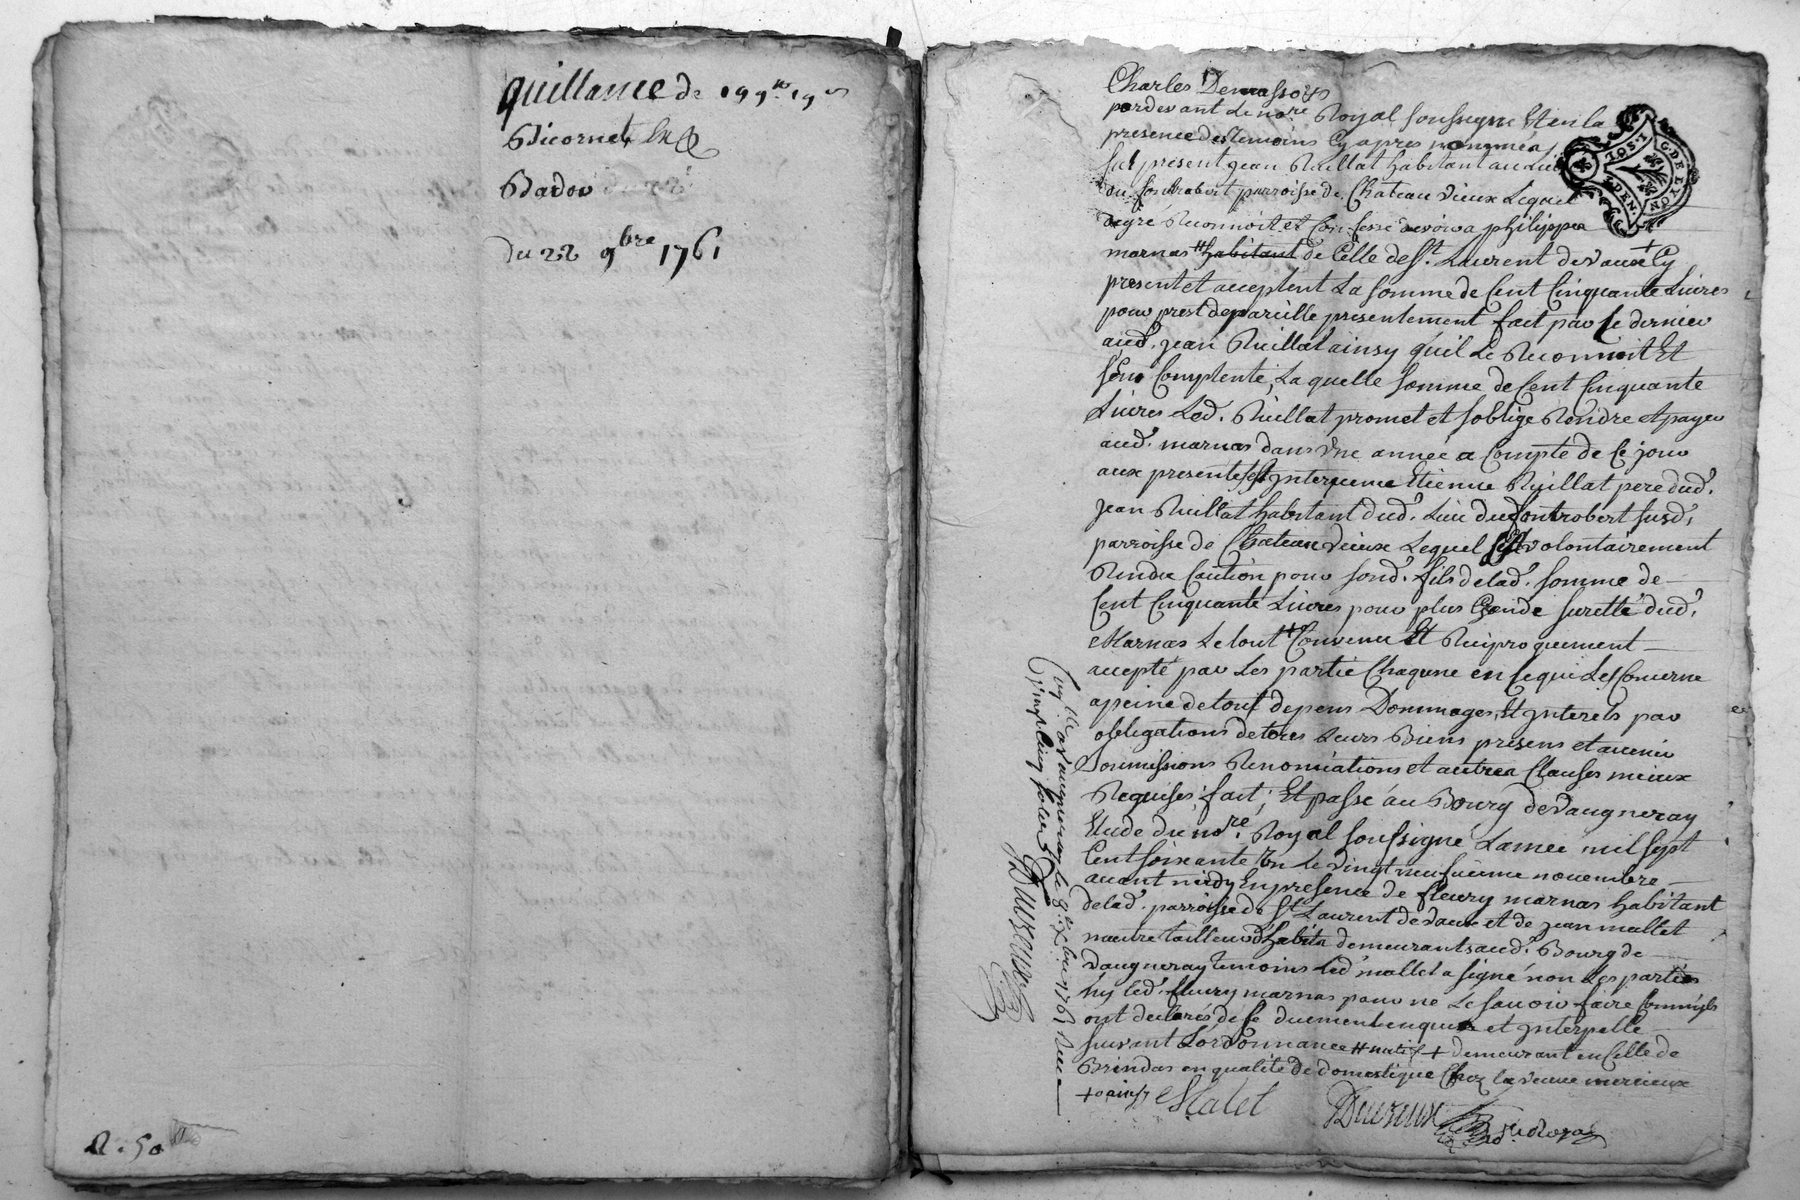 quittance de 199ᵗᵗ 19ˢ
Bicornet
Badou
du 22 9bre 1761
R. 50
Charles Demassoys
pardevant Le nore Royal soussigné Et en la
presence des temoins Cy apres nommés
fut present jean Ruillat habitant au Lieu
du fontrobert parroisse de Chateauvieux Lequel
de gré Reconnoit et Confesse devoir a philippe
marnas # habitant de Celle de St. Laurent de vaux + Cy
present et acceptent La somme de Cent Cinquante Livres
pour prest de pareille presentement fait par Le dernier
aud. jean Ruillat ainsy quil Le Reconnoit Et
sen Contente, La quelle somme de Cent Cinquante
Livres Led. Ruillat promet et soblige Rendre et payer
aud. marnas dans une année a Compté de Ce jour
aux presente Est Intervenue Etienne Ruillat pere dud.
jean Ruillat habitant dud. Lieu du fontrobert susd.
parroisse de Chateauvieux Lequel sest volontairement
Rendu Caution pour sond. fils de lad. somme de
Cent Cinquante Livres pour plus Grande suretté dud.
Marnas Le tout + Convenu Et Reciproquement
accepté par Les partie Chaqune en Ce qui Les Concerne
a peine de tout depens Dommages, Et Interets par
obligations de tous Leurs Biens presens et avenir
Soumissions Renonciations et autres Clauses mieux
Requises, fait, Et passé au Bourg de Vaugneray
Etude du nore. Royal soussigné Lannée mil sept
Cent soixante Un Le vingt neufvieme novembre
avant midy En presence de fleury marnas habitant
de lad. parroisse de St Laurent de vaux et de jean mallet
maitre tailleur d'habits demeurants aud. Bourg de
Vaugneray temoins Led mallet a signé non Les parties
ny led. fleury marnas pour ne Le savoir faire Comme ils
ont declarés de ce duement enquis et Interpellé
suivant L'ordonnance # natif + demeurant en Celle de
Brindas en qualité de domestique Chez la veuve mercieux
+ ainsy Malet Duvreux
a vaugneray le 8e xbre 1761 Reçu
Duvreux
G. DE LYON
DEN.